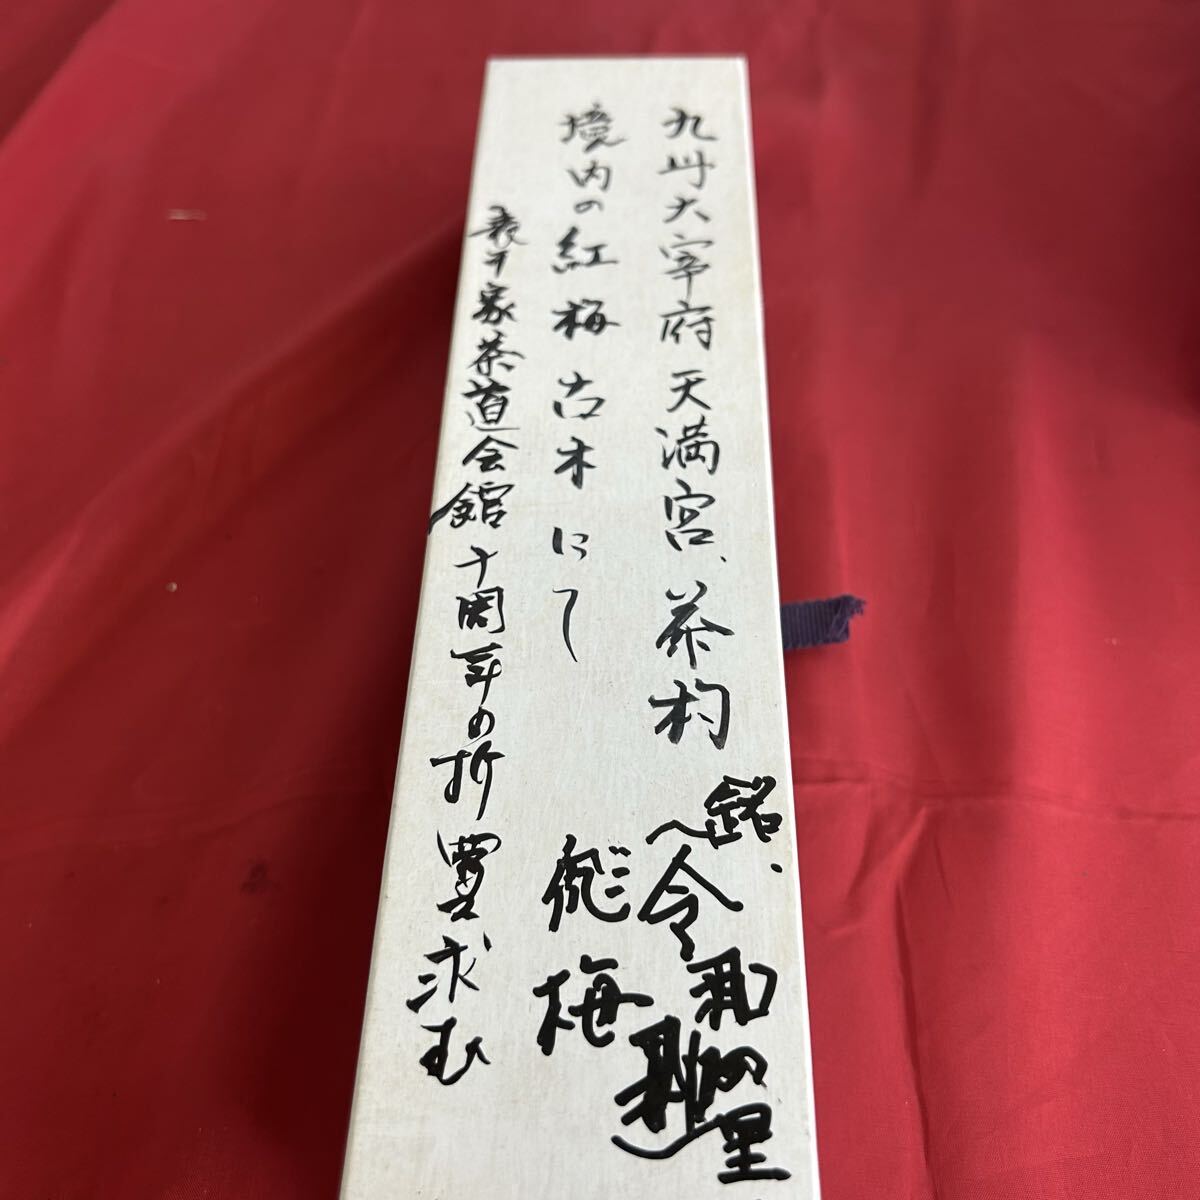 九州大宰府天満宮、茶杓
銘、
令和の里
境内の紅梅古木にて
飛梅
表千家茶道会館十周年の折買求む